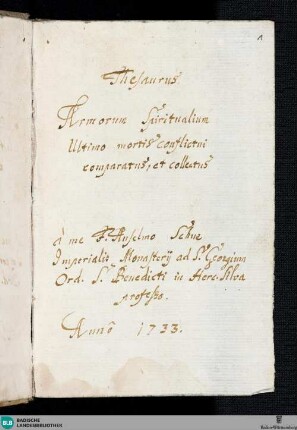 1
Thesaurus
Armorum Spiritualium
Ultimo mortis conflictui
comparatus, et collectus
à me P. Anselmo
Imperialis Monasterij ad S. Georgium
Ord. S. Benedicti in Herc. Silva
professo.
Annô 1733.
BLB BADISCHE
LANDESBIBLIOTHEK
Baden-Württemberg